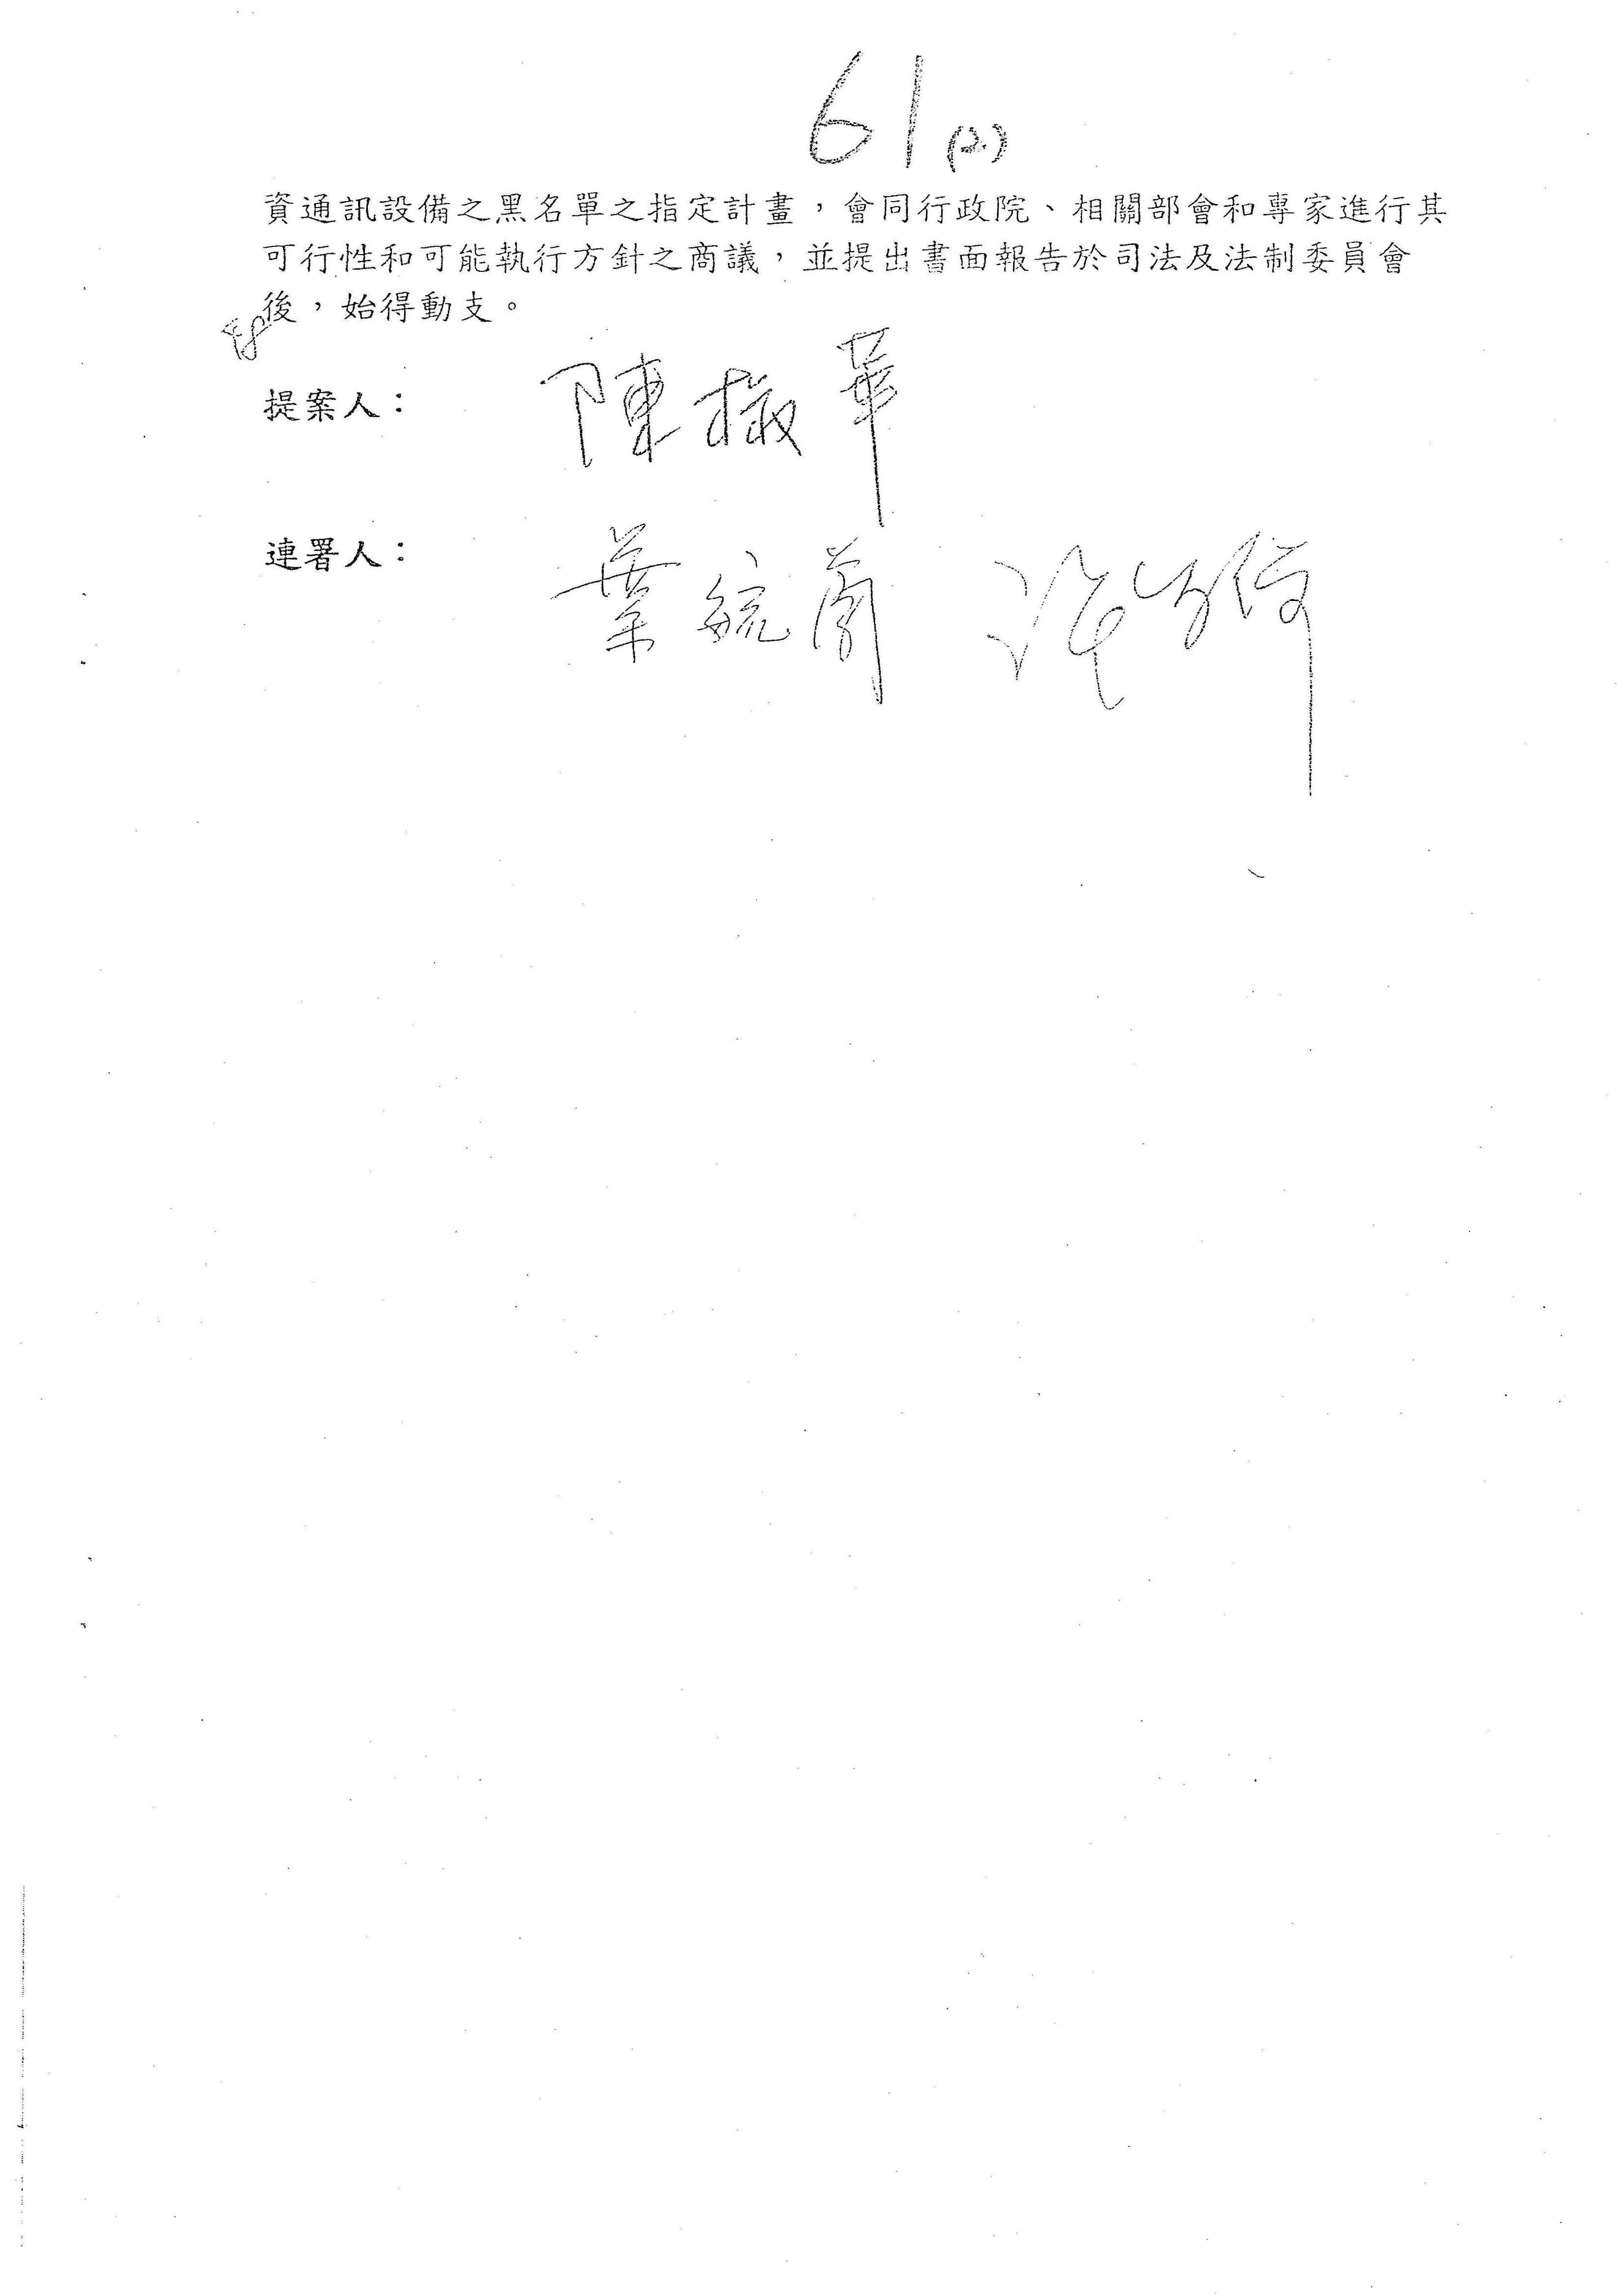 61 (2)
資通訊設備之黑名單之指定計畫，會同行政院、相關部會和專家進行其
可行性和可能執行方針之商議，並提出書面報告於司法及法制委員會
後，始得動支。
提案人： 陳椒華
連署人： 葉毓蘭